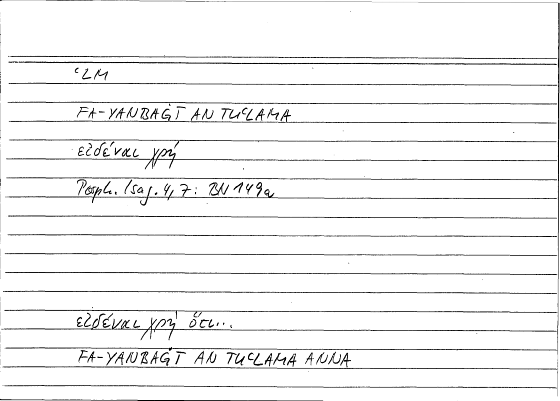 ʿLM
FA-YANBAĠĪ AN TUʿLAMA
εἰδέναι χρή
Porph. Isag. 4, 7: BN 149a
εἰδέναι χρή ὅτι...
FA-YANBAĠĪ AN TUʿLAMA ANNA